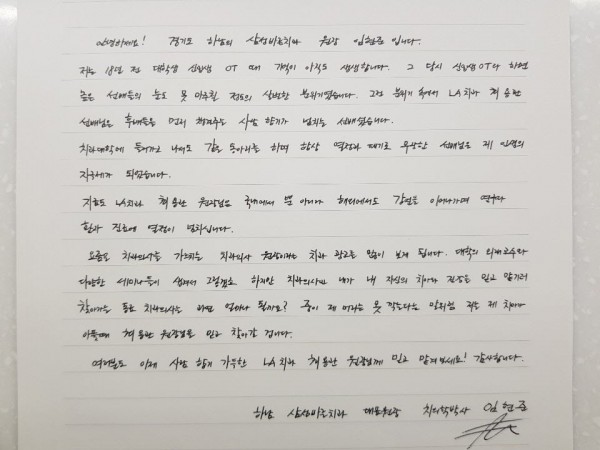 안녕하세요! 경기도 하남의 삼성바른치과 원장 임현준 입니다.
저는 18년 전 대학생 신입생 OT 때 기억이 아직도 생생합니다. 그 당시 신입생OT라 하면
숨은 선배들의 눈도 못 마주칠 정도의 살벌한 분위기였습니다. 그런 분위기 속에서 LA치과 최용관
선배님은 후배들을 먼저 챙겨주는 사람 향기가 넘치는 선배였습니다.
치과대학에 들어가고 나서도 같은 동아리를 하며 항상 열정과 패기로 무장한 선배님은 제 인생의
지금도 LA치과 최용관 원장님은 국내에서 뿐 아니라 해외에서도 강연을 이어나가며 연구와
환자 진료에 열정이 넘치십니다.
요즘도 치과의사를 가르치는 치과의사 원장이라는 치과 광고를 많이 보게 됩니다. 대학의 외래교수라
다양한 세미나들이 생겨서 그렇겠죠. 하지만 치과의사인 내가 내 자신의 치아와 건강을 믿고 맡기러
찾아가는 동료 치과의사는 과연 얼마나 될까요? 중이 제 머리는 못 깎는다는 말처럼 저는 제 치아가
아플때 최용관 원장님을 믿고 찾아갈 겁니다.
여러분도 이제 사람 향기 가득한 LA치과 최용관 원장님께 믿고 맡겨보세요! 감사합니다.
하남 삼성바른치과 대표원장 치의학박사 임현준